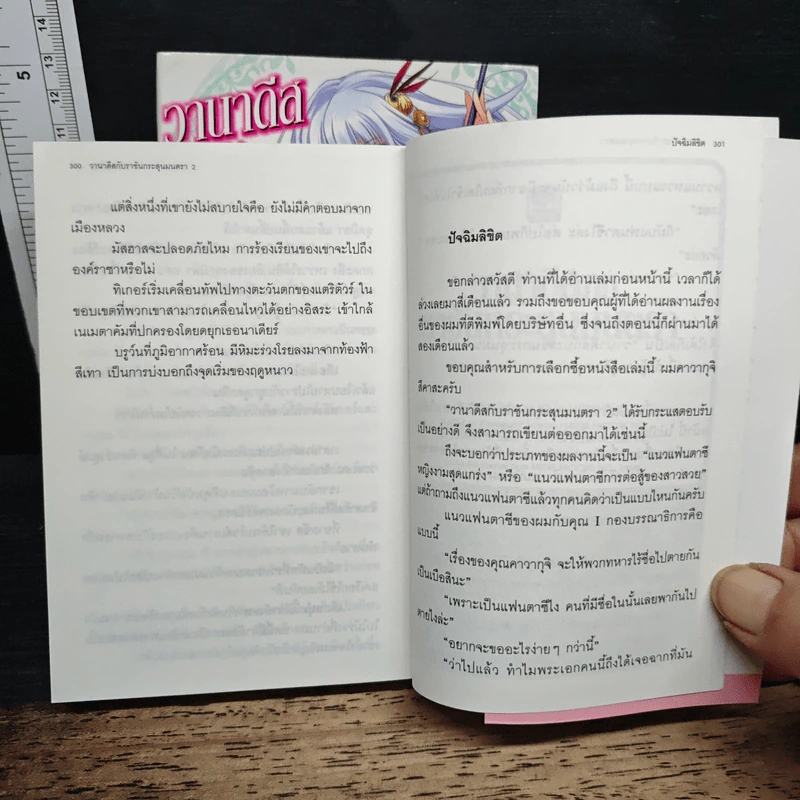 14
13
12
5
วานาดีส
300 วานาดีสกับราชันกระสุนมนตรา 2
แต่สิ่งหนึ่งที่เขายังไม่สบายใจคือ ยังไม่มีคำตอบมาจาก
เมืองหลวง
มัสฮาสจะปลอดภัยไหม การร้องเรียนของเขาจะไปถึง
องค์ราชาหรือไม่
ทิเกอร์เริ่มเคลื่อนทัพไปทางตะวันตกของแตริตัวร์ ใน
ขอบเขตที่พวกเขาสามารถเคลื่อนไหวได้อย่างอิสระ เข้าใกล้
เนเมตาคัมที่ปกครองโดยดยุกเธอนาเดียร์
บรูว์นที่ภูมิอากาศร้อน มีหิมะร่วงโรยลงมาจากท้องฟ้า
สีเทา เป็นการบ่งบอกถึงจุดเริ่มของฤดูหนาว
ปัจฉิมลิขิต 301
ปัจฉิมลิขิต
ขอกล่าวสวัสดี ท่านที่ได้อ่านเล่มก่อนหน้านี้ เวลาก็ได้
ล่วงเลยมาสี่เดือนแล้ว รวมถึงขอขอบคุณผู้ที่ได้อ่านผลงานเรื่อง
อื่นของผมที่ตีพิมพ์โดยบริษัทอื่น ซึ่งจนถึงตอนนี้ก็ผ่านมาได้
สองเดือนแล้ว
ขอบคุณสำหรับการเลือกซื้อหนังสือเล่มนี้ ผมคาวากุจิ
สึคาสะครับ
“วานาดีสกับราชันกระสุนมนตรา 2” ได้รับกระแสตอบรับ
เป็นอย่างดี จึงสามารถเขียนต่อออกมาได้เช่นนี้
ถึงจะบอกว่าประเภทของผลงานนี้จะเป็น “แนวแฟนตาซี
หญิงงามสุดแกร่ง” หรือ “แนวแฟนตาซีการต่อสู้ของสาวสวย”
แต่ถ้าถามถึงแนวแฟนตาซีแล้วทุกคนคิดว่าเป็นแบบไหนกันครับ
แนวแฟนตาซีของผมกับคุณ I กองบรรณาธิการคือ
แบบนี้
“เรื่องของคุณคาวากุจิ จะให้พวกทหารไร้ชื่อไปตายกัน
เป็นเบือสินะ”
“เพราะเป็นแฟนตาซีไง คนที่มีชื่อในนั้นเลยพากันไป
ตายไงล่ะ”
“อยากจะขออะไรง่ายๆ กว่านี้”
“ว่าไปแล้ว ทำไมพระเอกคนนี้ถึงได้เจอฉากที่มัน